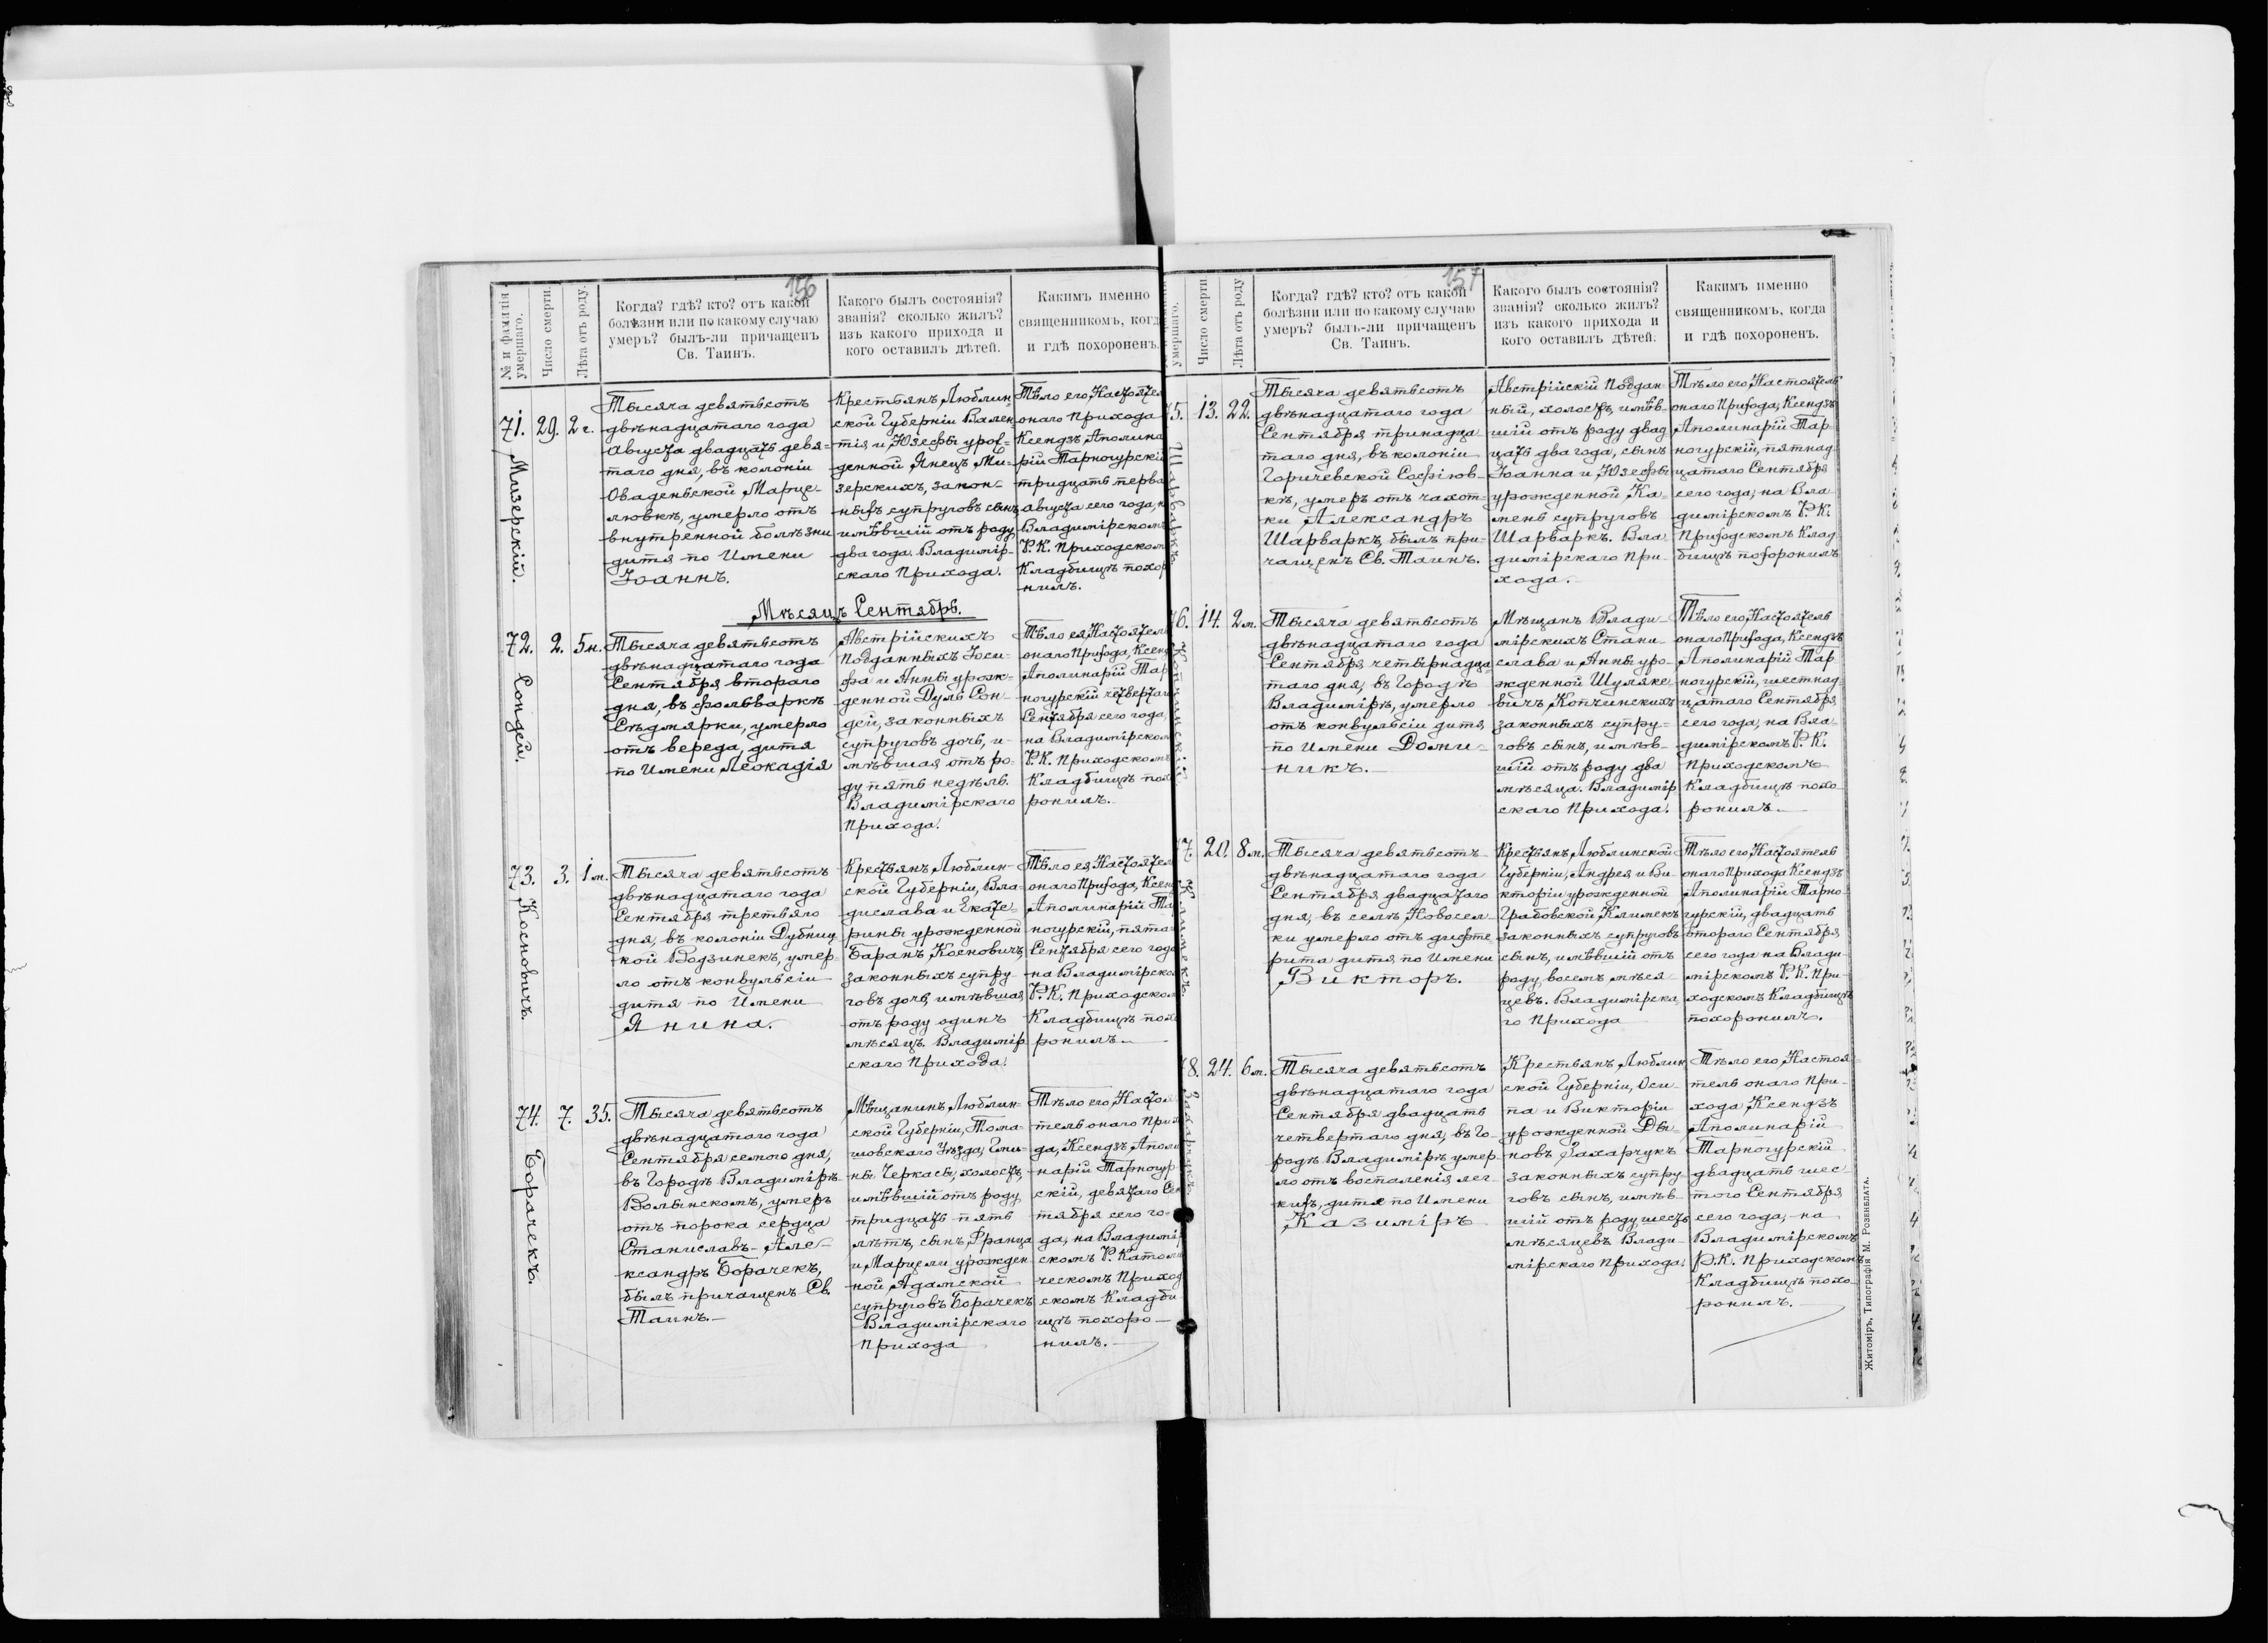 156
№ и фамилія умершаго.
Число смерти.
Лѣта отъ роду.
Когда? гдѣ? кто? отъ какой
болѣзни или по какому случаю
умеръ? былъ-ли причащенъ
Св. Таинъ.
Какого былъ состоянія?
званія? сколько жилъ?
изъ какого прихода и
кого оставилъ дѣтей.
Какимъ именно
священникомъ, когд
и гдѣ похороненъ.
71.
Мизерскій.
29.
2 г.
Тысяча девятьсотъ
двѣнадцатаго года
Августа двадцать девя-
таго дня, въ колоніи
Оваденьской Марце-
ловкѣ, умерло отъ
внутренной болѣзни
дитя по Имени
Іоаннъ.
Крестьянъ Люблин-
ской Губерніи Вален
тія и Юзефы урож-
денной Янецъ Ми-
зерскихъ, закон-
ныхъ супруговъ сынъ,
имѣвшій отъ роду
два года. Владимір-
скаго Прихода.
Тѣло его, Настоятел
онаго Прихода
Ксендзъ, Аполина
рій Тарногурскі
тридцать перва
августа сего года, н
Владимірскомъ
Р. К. Приходском
Кладбищѣ похор
нилъ.
Мѣсяцъ Сентябрь.
72.
Сондей.
2.
5 н.
Тысяча девятьсотъ
двѣнадцатаго года
Сентября втораго
дня, въ фольваркѣ
Сѣдмярки, умерло
отъ вереда, дитя
по Имени Леокадія
Австрійскихъ
Подданныхъ Іоси-
фа и Анны урож-
денной Дуль Сон-
дей, законныхъ
супруговъ дочь, и-
мѣвшая отъ ро-
ду пять недѣль.
Владимірскаго
Прихода.
Тѣло ея, Настоятел
онаго Прихода, Ксенд
Аполинарій Тар
ногурскій четвертаг
Сентября сего года,
на Владимірском
Р. К. Приходскомъ
Кладбищѣ пох
ронилъ.
73.
Косновичъ.
3.
1 м.
Тысяча девятьсотъ
двѣнадцатаго года
Сентября третьяго
дня, въ колоніи Дубниц
кой Водзинекъ, умер-
ло отъ конвульсіи
дитя по Имени
Янина.
Крестьянъ Люблин-
ской Губерніи, Вла-
дислава и Екате-
рины урожденной
Баранъ, Косновичъ,
законныхъ супру-
говъ дочь, имѣвшая
отъ роду одинъ
мѣсяцъ. Владимір
скаго Прихода.
Тѣло ея, Настоятел
онаго Прихода, Ксенд
Аполинарій Та
ногурскій, пята
Сентября сего года
на Владимірско
Р. К. Приходском
Кладбищѣ пох
ронилъ.
74.
Борачекъ.
7.
35.
Тысяча девятьсотъ
двѣнадцатаго года
Сентября семого дня,
въ Городѣ Владимірѣ-
Волынскомъ, умеръ
отъ порока сердца
Станиславъ-Але-
ксандръ Борачекъ,
былъ причащенъ Св.
Таинъ.
Мѣщанинъ, Люблин-
ской Губерніи, Тома-
шовскаго Уѣзда, Гми-
ны Черкасы, холостъ,
имѣвшій отъ роду
тридцать пять
лѣтъ, сынъ, Франца
и Марцели урожден
ной Адамской
супруговъ Борачекъ
Владимірскаго
Прихода
Тѣло его, Настоя
тель онаго При
да, Ксендзъ, Аполи
нарій Тарногур
скій, девятаго Сен
тября сего го-
да, на Владимі
скомъ Р. Католи
ческомъ Приход
скомъ Кладби
щѣ похоро-
нилъ.
157
умершаго.
Число смерти
Лѣта отъ роду
Когда? гдѣ? кто? отъ какой
болѣзни или по какому случаю
умеръ? былъ-ли причащенъ
Св. Таинъ.
Какого былъ состоянія?
званія? сколько жилъ?
изъ какого прихода и
кого оставилъ дѣтей.
Какимъ именно
священникомъ, когда
и гдѣ похороненъ.
5.
Шарваркъ.
13.
22.
Тысяча девятьсотъ
двѣнадцатаго года
Сентября тринадца-
таго дня, въ колоніи
Горичевской Софіюв-
кѣ, умеръ отъ чахот-
ки Александръ
Шарваркъ, былъ при-
чащенъ Св. Таинъ.
Австрійскій Поддан
ный, холостъ, имѣв-
шій отъ роду двад
цать два года, сынъ
Іоанна и Юзефы
урожденной Ка-
мень супруговъ
Шарваркъ. Вла
димірскаго При-
хода.
Тѣло его, Настоятель
онаго Прихода, Ксендзъ
Аполинарій Тар-
ногурскій, пятнад-
цатаго Сентября
сего года, на Вла-
димірскомъ Р. К.
Приходскомъ Клад-
бищѣ похоронилъ
6.
Копчинскій.
14.
2 м.
Тысяча девятьсотъ
двѣнадцатаго года
Сентября четырнадца
таго дня, въ Городѣ
Владимірѣ, умерло
отъ конвульсіи дитя,
по Имени Доми-
никъ.
Мѣщанъ Влади-
мірскихъ Стани-
слава и Анны уро-
жденной Шуляке-
вичъ Копчинскихъ
законныхъ супру-
говъ сынъ, имѣв-
шій отъ роду два
мѣсяца. Владимір
скаго Прихода.
Тѣло его, Настоятель
онаго Прихода, Ксендзъ
Аполинарій Тар
ногурскій, шестнад
цатаго Сентября
сего года, на Вла-
димірскомъ Р. К.
Приходскомъ
Кладбищѣ похо
ронилъ.
7.
Климекъ.
20.
8 м.
Тысяча девятьсотъ
двѣнадцатаго года
Сентября двадцатаго
дня, въ селѣ Новосел-
ки умерло отъ дифте-
рита дитя, по Имени
Викторъ.
Крестьянъ Люблинской
Губерніи, Андрея и Ви-
кторіи урожденной
Грабовской, Климекъ
законныхъ супруговъ
сынъ, имѣвшій отъ
роду, восемь мѣся-
цевъ. Владимірска
го Прихода
Тѣло его, Настоятель
онаго Прихода Ксендзъ
Аполинарій Тарно-
гурскій, двадцать
второго Сентября
сего года на Влади-
мірскомъ Р. К. При-
ходскомъ Кладбищѣ
похоронилъ.
8.
Захарчукъ.
24.
6 м.
Тысяча девятьсотъ
двѣнадцатаго года
Сентября двадцать
четвертаго дня, въ Го-
родѣ Владимірѣ умер
ло отъ воспаленія лег
кихъ, дитя по Имени
Казиміръ
Крестьянъ Люблин
ской Губерніи, Оси-
па и Викторіи
урожденной
новъ Захарчукъ
законныхъ супру-
говъ сынъ, имѣв-
шій отъ роду, шесть
мѣсяцевъ Влади-
мірскаго Прихода.
Тѣло его, Настоя-
тель онаго При-
хода Ксендзъ
Аполинарій
Тарногурскій
двадцать шес-
того Сентября
сего года, на
Владимірскомъ
Р. К. Приходскомъ
Кладбищѣ похо-
ронилъ.
Житоміръ, Типографія М. Розенблата.